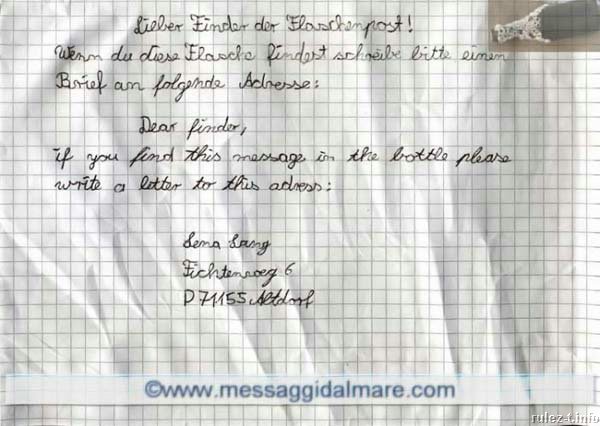 Lieber Finder der Flaschenpost!
Wenn du diese Flasche findest schreibe bitte einen
Brief an folgende Adresse:
Dear finder,
if you find this message in the bottle please
write a letter to this adress:
Lena Lang
Fichtenweg 6
D 71155 Altdorf
©www.messaggidalmare.com
rulez-t.info